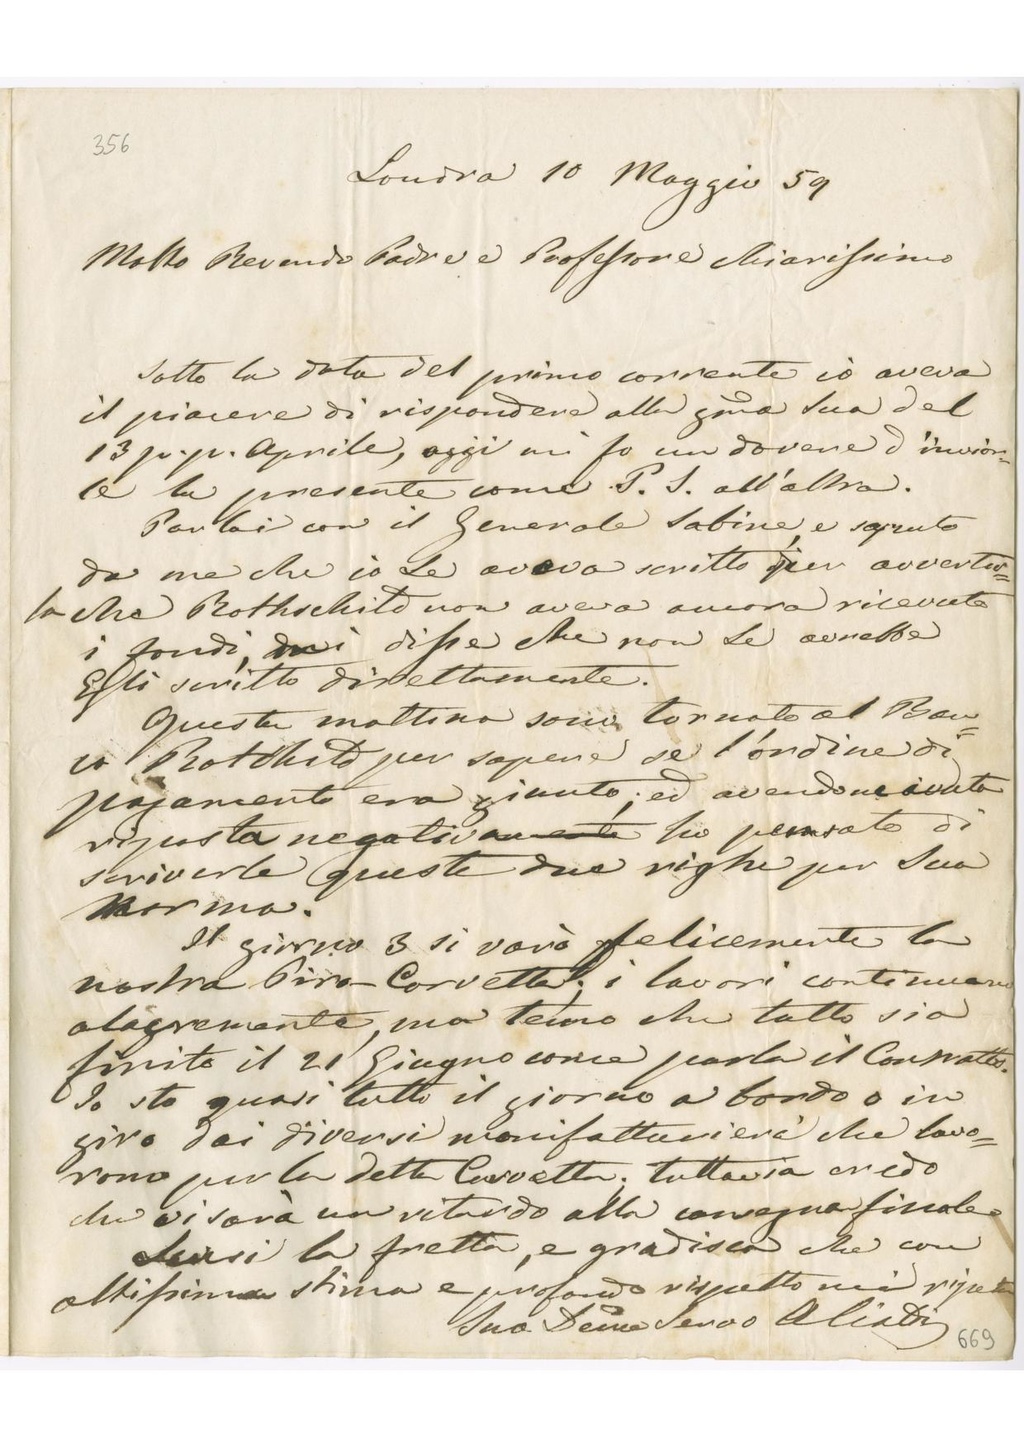 356
Londra 10 Maggio 59
Molto Revendo Padre e Professore chiarissimo
Sotto la data del primo corrente io aveva
il piacere di rispondere alla gma Sua del
13 p.p. Aprile, oggi mi fo un dovere d'invior=
le la presente come P. S. all'altra.
Parlai con il Generale Sabine, e saputo
da me che io Le aveva scritto per avvertir=
la che Rothschild non aveva ancora ricevuto
i fondi, mi disse che non Le avrebbe
Egli scritto direttamente.
Questa mattina sono tornato al Ban=
co Rothhild per sapere se l'ordine di
pagamento era giunto; ed avendone avuto
risposta negativamente ho pensato di
scriverle queste due righe per Sua
Norma.
Il giorno 3 si varò felicemente la
nostra Piro-Corvetta; i lavori continuano
alagremente, ma temo che tutto sia
finito il 21 Giugno come parla il Contratto.
Io sto quasi tutto il giorno a bordo o in
giro dai diversi manifatturieri che lavo=
rono per la detta Corvetta, tuttavia credo
che vi sarà un ritardo alla consegna finale.
Scusi la fretta, e gradisca che con
altissima stima e profondo rispetto mi ripeta
Suo Demo Servo A Cialdi
669